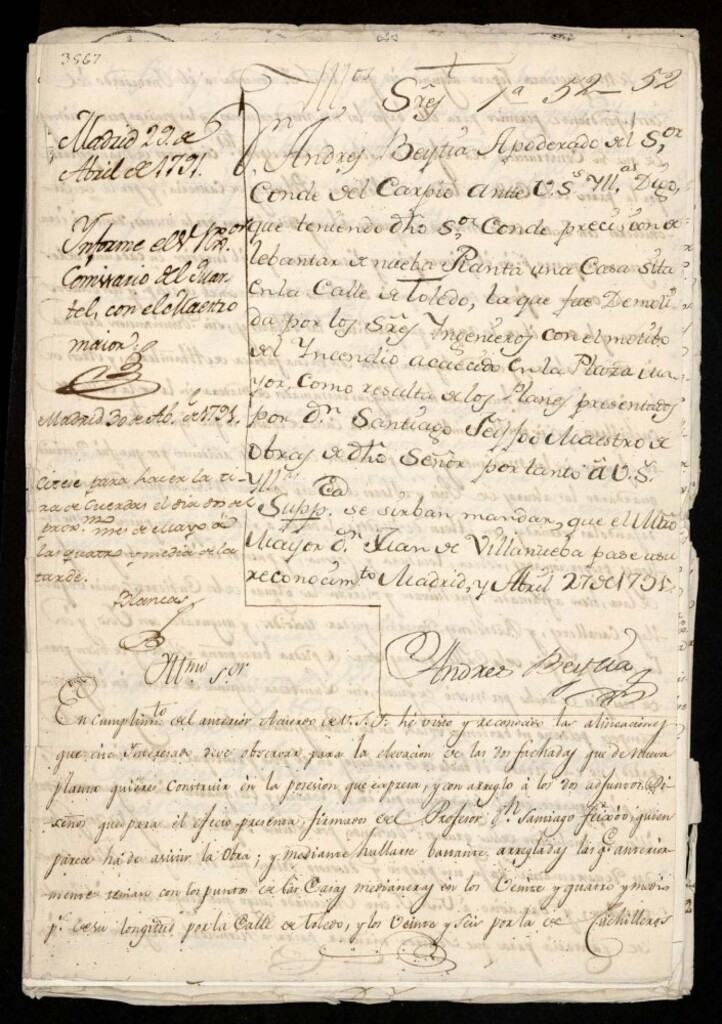 3567
Yll.mos S.res 1ª 52-52
Madrid 29. de
Abril de 1791.
Informe el S.r
Comissario del Quar-
tel, con el Maestro
maior.
Madrid 30 de Ab. de 1791.
Citese para hacer la ti-
ra de Cuerdas el dia dos del
prox.mo mes de Mayo a
las quatro y media de la
tarde.
Blancas
D.n Andres Beytia Apoderado del S.or
Conde del Carpio ante V.S. Yll.mas Digo,
que teniendo dho S.or Conde precision de
lebantar de nueba Planta una Casa sita
en la Calle de Toledo, la que fue Demoli-
da por los S.res Ingenieros con el motibo
del Yncendio acaecido en la Plaza ma-
yor, como resulta de los Planes presentados
por d.n Santiago Feijoo Maestro de
Obras de dho Señor por tanto á V.S.
Yll.mas
Supp.ca se sirban mandar, que el Mtro
Mayor d.n Juan de Villanueba pase a su
reconocim.to Madrid, y Abril 27 de 1791.
Andres Beytia
Yllmo S.or
En cumplim.to del anterior Acuerdo de V.S.I. he visto y reconocido las alineaciones
que este Interesado deve observar para la elevacion de las dos fachadas que de nueva
planta quiere construir en la posesion que expresa, y con arreglo á los dos adjuntos Di-
seños que para el efecto presenta, firmados del Profesor d.n Santiago Feixóo, quien
parece há de asistir la Obra; y mediante hallarse bastante arregladas las q.e anterior-
mente tenian con los puntos de las Casas medianeras en los Veinte y quatro y medio
p.s de su longitud por la Calle de Toledo, y los Veinte y seis por la de Cuchilleros